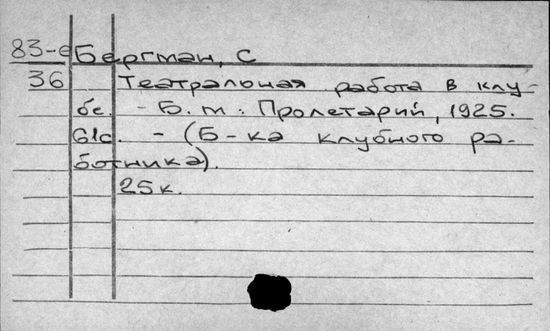 83-е Бергман, С
36 Театральная работа в клу-
бе. - Б.м: Пролетарий, 1925.
61с. - (Б-ка клубного ра-
ботника).
25к.